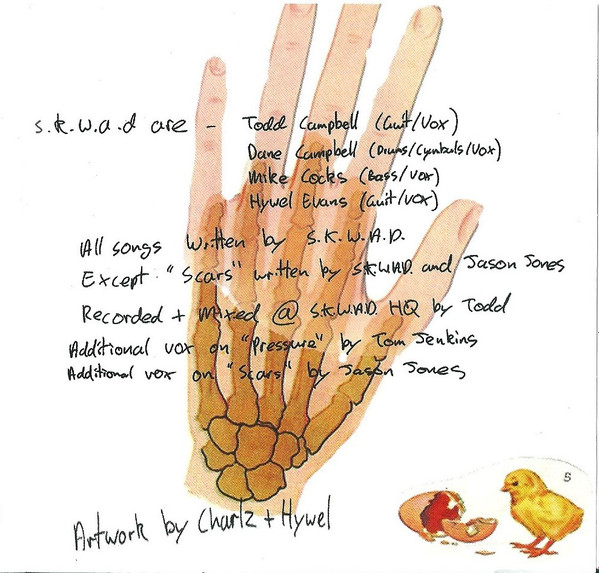 s.k.w.a.d are - Todd Campbell (Guit/Vox)
Dane Campbell (Drums/Cymbals/Vox)
Mike Cocks (Bass/Vox)
Hywel Evans (Guit/Vox)
All songs written by S.K.W.A.D.
Except "Scars" written by S.K.W.A.D. and Jason Jones
Recorded + Mixed @ S.K.W.A.D. HQ by Todd
Additional vox on "Pressure" by Tom Jenkins
Additional vox on "Scars" by Jason Jones
Artwork by Charlz + Hywel
5